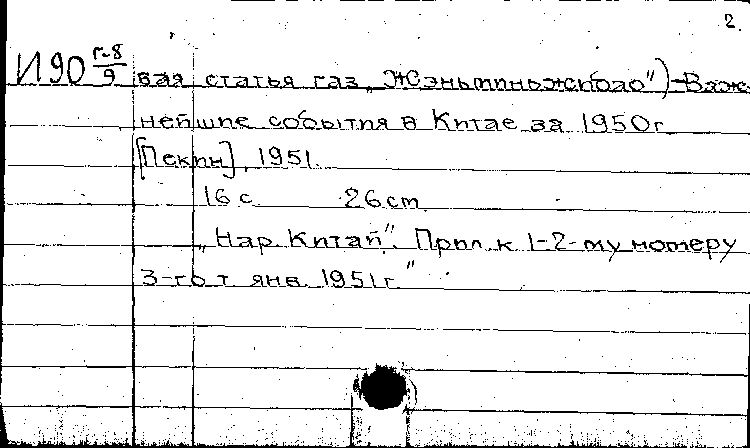 2.
И90 г-8/9 вая статья газ. „Жэньминьжибао") – Важ-
нейшие события в Китае за 1950г.
[Пекин], 1951.
16 с. 26 cm.
„Нар. Китай". Прил. к 1-2-му номеру
3-го т. янв. 1951г."